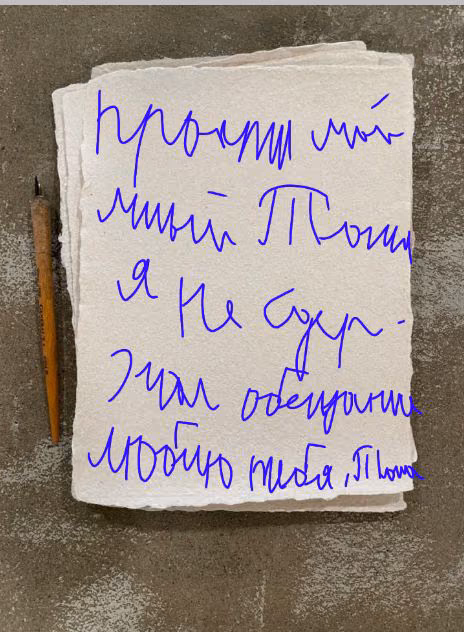 прости мой
милый Тоша
я не сдер-
жал обещание
люблю тебя, Тоша